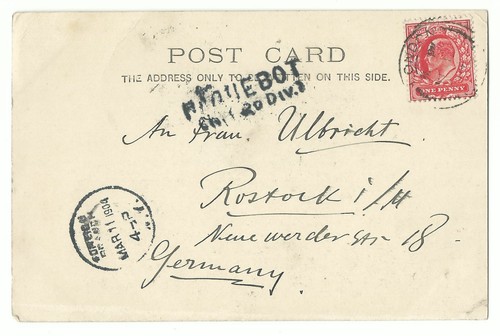 POST CARD
THE ADDRESS ONLY TO BE WRITTEN ON THIS SIDE.
PAQUEBOT
ONE PENNY
An Frau Ulbricht.
Rostock i/M
Neue werder str 18-
Germany.
MAR 11 1904
4-P